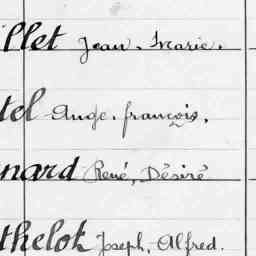 llet Jean, Marie.
tel Ange, françois,
nard René, Désiré
thelot Joseph, Alfred.